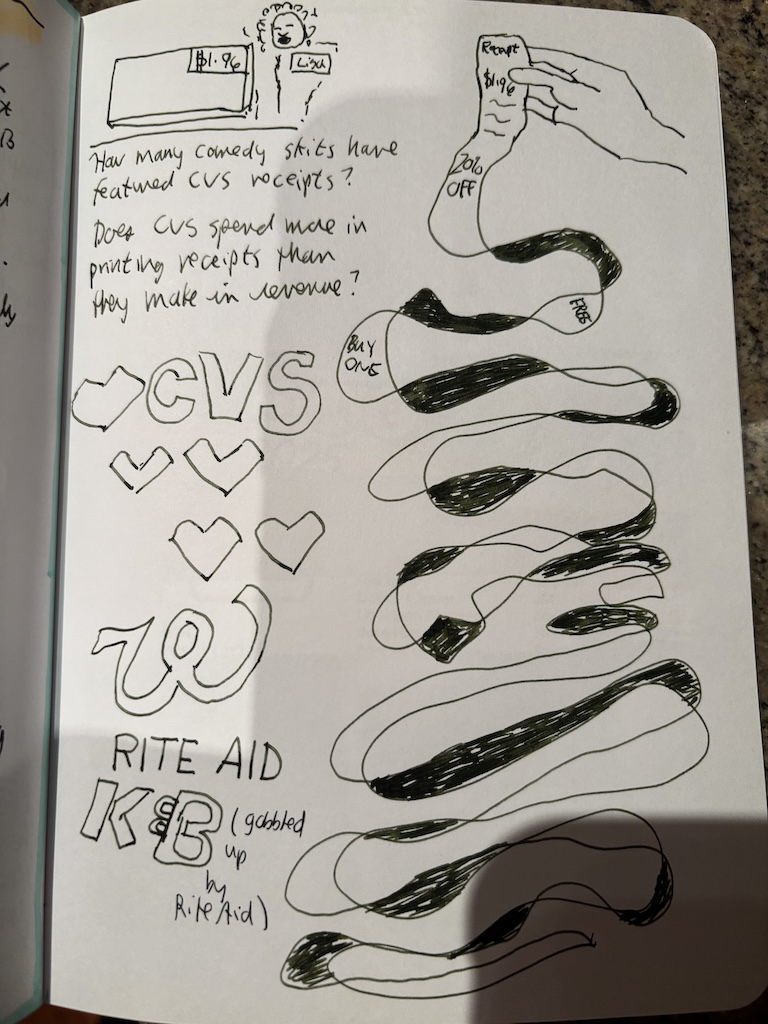 $1.96
Lisa
How many comedy skits have
featured CVS receipts?
Does CVS spend more in
printing receipts than
they make in revenue?
CVS
W
RITE AID
K&B (gobbled
up
by
Rite Aid)
Receipt
$1.96
20%
OFF
FREE
BUY
ONE